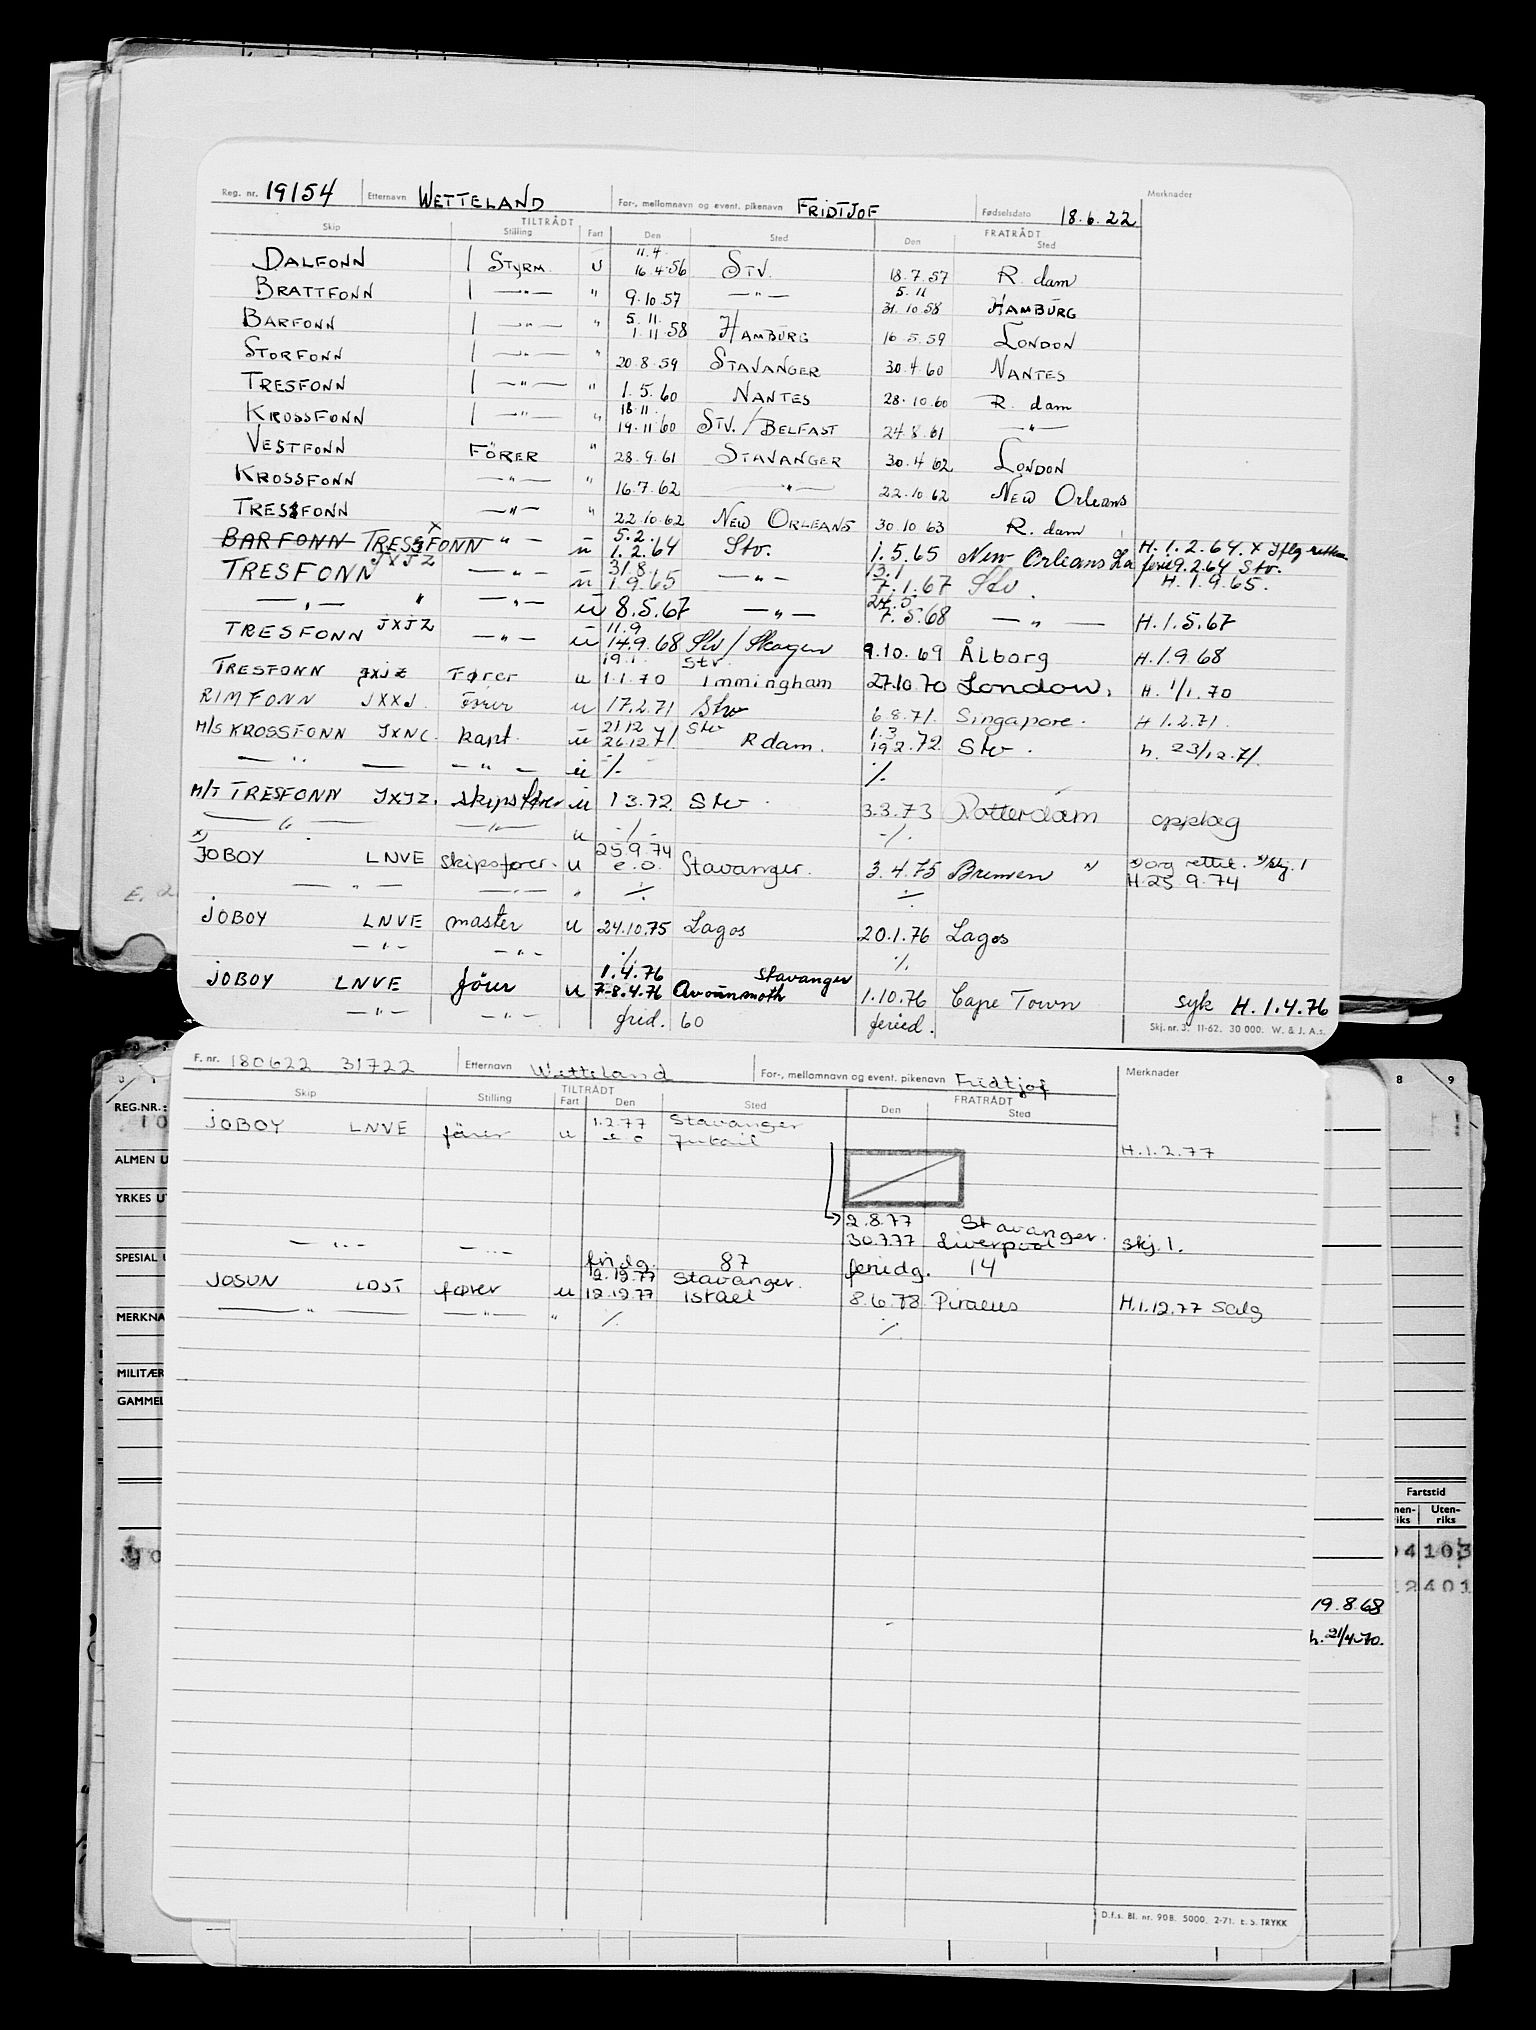 Reg. nr. 19154 Etternavn WETTELAND For-, mellomnavn og event. pikenavn FRIDTJOF Fødselsdato 18.6.22 Merknader
TILTRÅDT FRATRÅDT
Skip Stilling Fart Den Sted Den Sted
DALFONN 1 STYRM. U 11.4. 16.4.56 STV. 18.7.57 R. dam
BRATTFONN 1 —"— " 9.10.57 —"— 5.11 31.10.58 HAMBURG
BARFONN 1 —"— " 5.11. 1.11.58 HAMBURG 16.5.59 LONDON
STORFONN 1 —"— " 20.8.59 STAVANGER 30.4.60 NANTES
TRESFONN 1 —"— " 1.5.60 NANTES 28.10.60 R. dam
KROSSFONN 1 —"— " 18.11. 19.11.60 STV./BELFAST 24.8.61 —"—
VESTFONN FÖRER " 28.9.61 STAVANGER 30.4.62 LONDON
KROSSFONN —"— " 16.7.62 —"— 22.10.62 NEW Orleans
TRESFONN —"— " 22.10.62 NEW ORLEANS 30.10.63 R. dam
BARFONN TRESFONN x JXJZ —"— u 5.2. 1.2.64 Stv. 1.5.65 New Orleans La H. 1.2.64. x Iflg
TRESFONN —"— u 31/8 1.9.65 —"— 13.1 7.1.67 Stv. 9.2.64 Stv. H. 1.9.65.
—"— " —"— u 8.5.67 —"— 24.5. 7.5.68 —"— H.1.5.67
TRESFONN JXJZ —"— u 11.9 14.9.68 Stv/Skagen 9.10.69 ÅLborg H.1.9.68
TRESFONN JXJZ Fører u 19.1. 1.1.70 Stv. Immingham 27.10.70 London. H. 1/1.70
RIMFONN JXXJ. Fører u 17.2.71 Stv 6.8.71. Singapore. H 1.2.71.
M/S KROSSFONN JXNC. kapt. u 21.12 26.12.71. Stv Rdam. 1.3 19.2.72 Stv. h. 23/12.71.
—"— —"— u ./. ./.
M/T TRESFONN JXJZ. skipsfører u 1.3.72 Stv. 3.3.73 Rotterdam opplag
—"— —"— u ./. ./.
x) JOBOY LNVE skipsfører. u 25.9.74 e.o. Stavanger. 3.4.75 Bremen x) org rettet. skj. 1 H.25.9.74
—"— —"— " ./. ./.
JOBOY LNVE master u 24.10.75 Lagos 20.1.76 Lagos
—"— —"— ./. ./.
JOBOY LNVE förer u 1.4.76 7-8.4.76 Stavanger Avounmoth 1.10.76 Cape Town syk H.1.4.76
—"— —"— frid. 60 feried.
Skj. nr. 3. 11-62. 30 000. W. & J. A.s.
F. nr. 180622 31722 Etternavn Wetteland For-, mellomnavn og event. pikenavn Fridtjof Merknader
TILTRÅDT FRATRÅDT
Skip Stilling Fart Den Sted Den Sted
JOBOY LNVE fører u 1.2.77 e o Stavanger H.1.2.77
2.8.77 Stavanger.
30.7.77 Liverpool skj.1.
—"— —"— fridg. 87 feriedg. 14
JOSUN LDST fører u 12.12.77 12.12.77 Stavanger. Istael 8.6.78 Piraeus H.1.12.77 Salg
—"— —"— " ./. ./.
D.f.s. Bl. nr. 90B. 5000. 2-71. E. S. TRYKK
REG.NR.:
ALMEN U
YRKES U
SPESIAL U
MERKNA
MILITÆR
GAMMEL
8 9
Fartstid
Uten-riks
04 103
12401
19.8.68
h. 21/4-70.